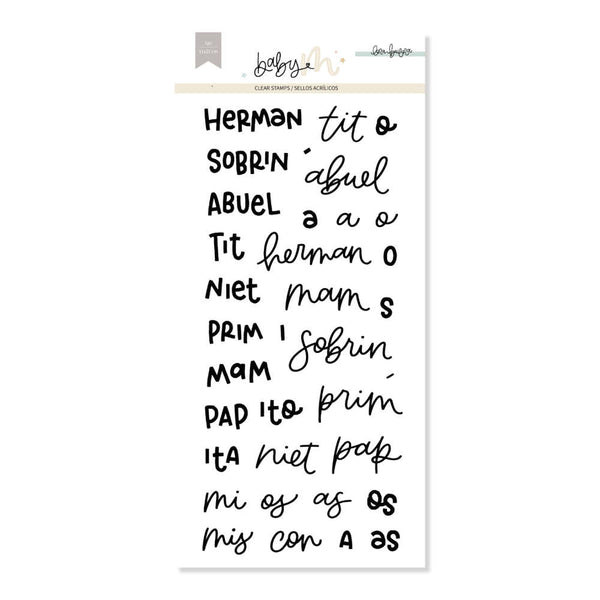 baby M
CLEAR STAMPS / SELLOS ACRÍLICOS
HERMAN tit o
SOBRIN ´ abuel
ABUEL a a o
Tit herman o
NIET mam s
PRIM I sobrin
MAM ´ prim
PAP ITO
ITA niet pap
mi os as os
mis con A as